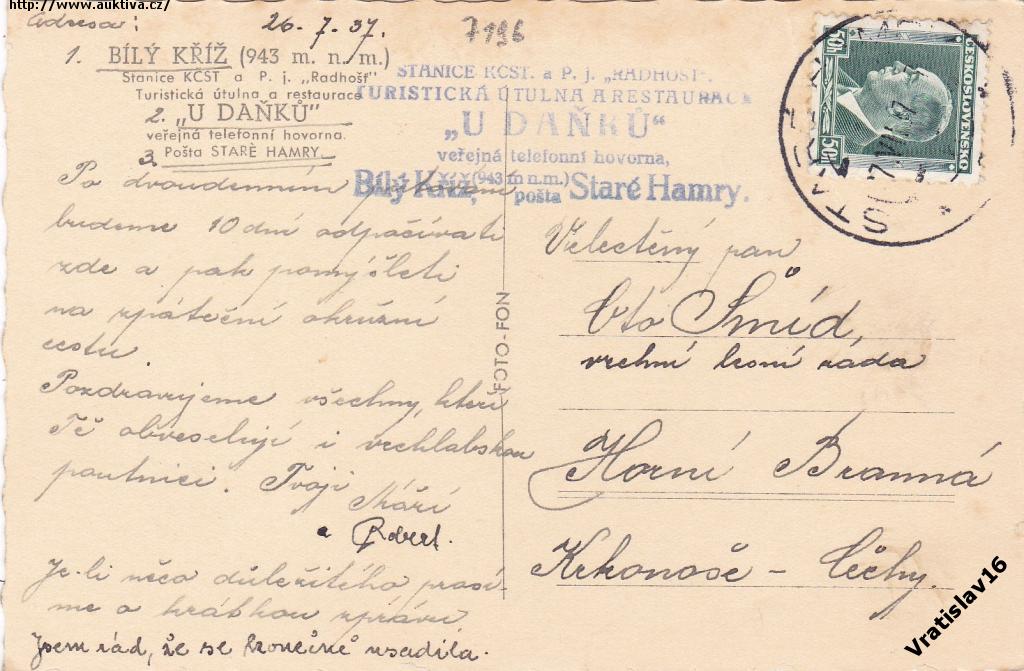 http://www.auktiva.cz/
Adresa: 26.7.37.
7196
1. BÍLÝ KŘÍŽ (943 m. n. m.)
Stanice KČST a P. j. „Radhošť"
Turistická útulna a restaurace
2. „U DAŇKŮ"
veřejná telefonní hovorna.
3. Pošta STARÉ HAMRY.
STANICE KČST. a P. j. „RADHOŠŤ".
TURISTICKÁ ÚTULNA A RESTAURACE
„U DAŇKŮ"
veřejná telefonní hovorna,
Bílý Kříž, (943 m n.m.) pošta Staré Hamry.
ČESKOSLOVENSKO
50h
50h
Po dvoudenním
budeme 10 dní odpočívati
zde a pak pomýšleti
na zpáteční okružní
cestu.
Pozdravujeme všechny, kteří
Tě obveselují i vrchlabskou
poutnici. Tvoji
Máří
a Robert.
Je-li něco důležitého prosí-
me o krátkou zprávu.
Jsem rád, že se konečně usadila.
FOTO-FON
Velectěný pan
Oto Šmíd,
vrchní komí rada
Horní Branná
Krkonoše - Čechy.
Vratislav16